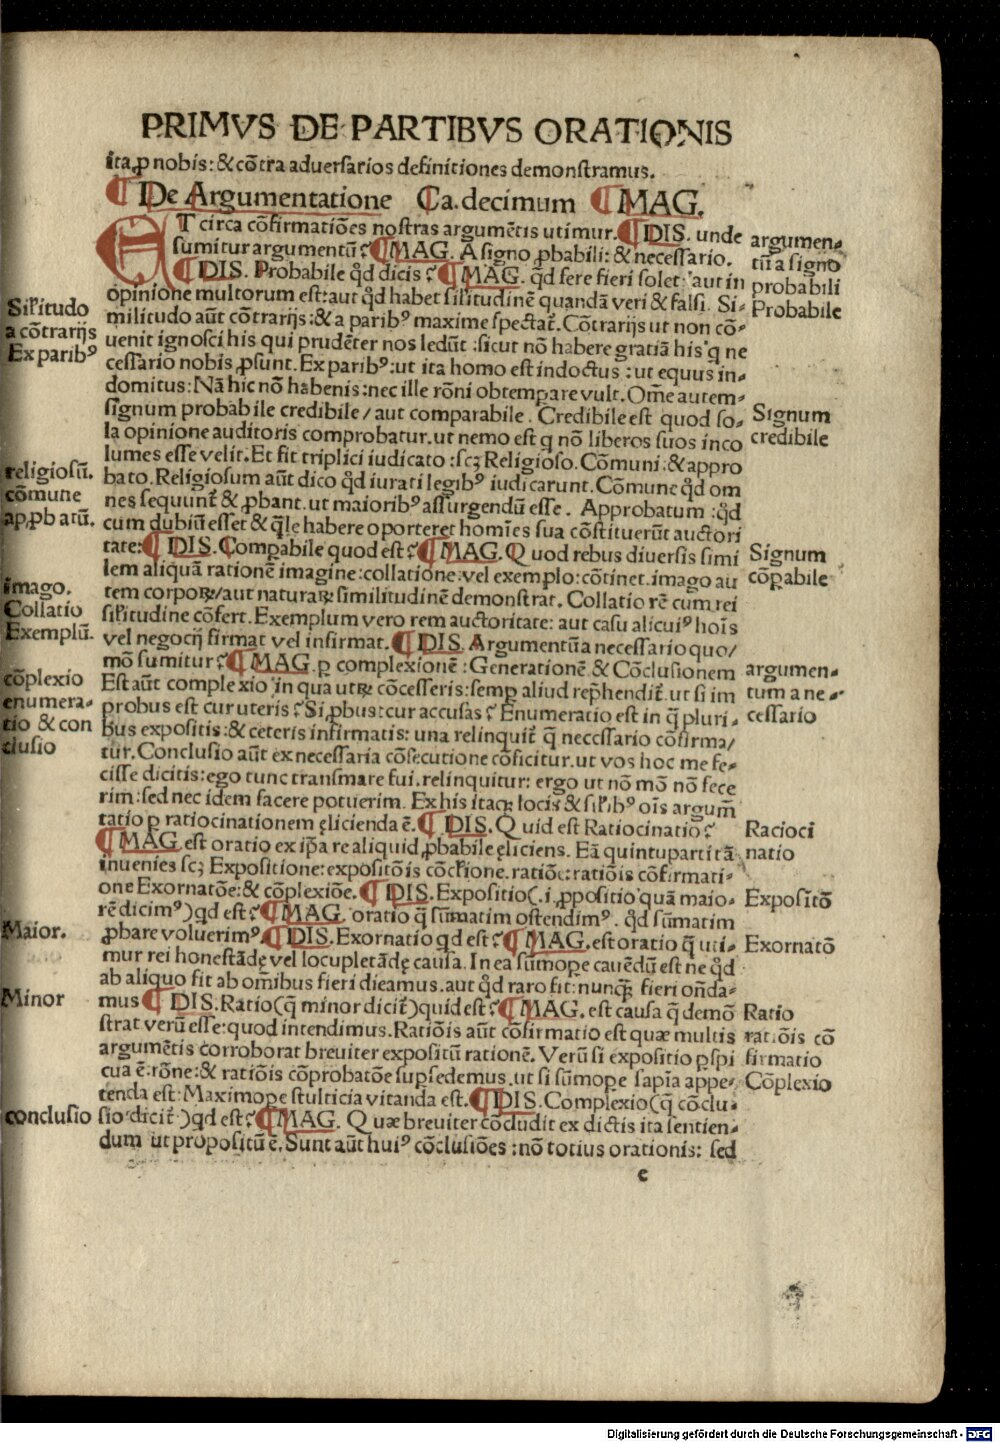 PRIMVS DE PARTIBVS ORATIONIS
ita ꝓ nobis: & cõtra adversarios definitiones demonstramus.
¶ De Argumentatione Ca. decimum ¶ MAG.
ET circa cõfirmatiões nostras argumētis utimur. ¶ DIS. unde
sumitur argumentũ? ¶ MAG. A signo ꝓbabili: & necessario.
¶ DIS. Probabile qđ dicis? ¶ MAG. qđ fere fieri solet: aut in
opinione multorum est: aut qđ habet silitudinē quandã veri & falsi. Si-
militudo aũt cõtrarijs: & a paribꝰ maxime spectat̃. Cõtrarijs ut non cõ-
uenit ignosci his qui prudēter nos ledũt: sicut nõ habere gratiã his q̃ ne
cessario nobis ꝓsunt. Ex paribꝰ: ut ita homo est indoctus: ut equus in-
domitus: Nã hic nõ habenis: nec ille rõni obtempare vult. Om̃e autem-
signum probabile credibile / aut comparabile. Credibile est quod so-
la opinione auditoris comprobatur. ut nemo est q nõ liberos suos inco
lumes esse velit. Et fit triplici iudicato: scꝫ Religioso. Cõmuni: & appro
bato. Religiosum aũt dico qđ iurati legibꝰ iudicarunt. Cõmune qđ om
nes sequunt̃ & ꝓbant. ut maioribꝰ assurgendũ esse. Approbatum: qđ
cum dubiũ esset & q̃le habere oporteret homĩes sua cõstituerũt auctori
tate: ¶ DIS. Compabile quod est? ¶ MAG. Quod rebus diversis simi
lem aliquã rationē imagine: collatione: vel exemplo: cõtinet. imago au
tem corpoꝝ / aut naturaꝝ similitudinē demonstrat. Collatio rē cum rei
silitudine cõfert. Exemplum vero rem auctoritate: aut casu alicuiꝰ hoĩs
vel negocij firmat vel infirmat. ¶ DIS. Argumentũ a necessario quo /
mõ sumitur? ¶ MAG. ꝑ complexionē: Generationē & Cõclusionem
Est aũt complexio in qua utꝝ cõcesseris: semꝑ aliud rep̃hendit̃. ut si im
probus est cur uteris? Si ꝓbus: cur accusas? Enumeratio est in q̃ pluri-
bus expositis: & ceteris infirmatis: una relinquit̃ q̃ necessario cõfirma /
tur. Conclusio aũt ex necessaria cõsecutione cõficitur. ut vos hoc me fe-
cisse dicitis: ego tunc transmare fui. relinquitur: ergo ut nõ mõ nõ fece
rim: sed nec idem facere potuerim. Ex his itaqꝫ locis & silibꝰ oĩs argum̃
tatio ꝑ ratiocinationem ęlicienda ē. ¶ DIS. Quid est Ratiocinatio?
¶ MAG. est oratio ex ip̃a re aliquid ꝓbabile ęliciens. Eã quintupartitã
inuenies scꝫ Expositione: expositõis cõctione. ratiõe: ratiõis cõfirmati-
one Exornatõe: & cõplexiõe. ¶ DIS. Expositio (.i. ꝓpositio quã maio-
rē dicimꝰ) qd est? ¶ MAG. oratio q̃ sũmatim ostendimꝰ. qđ sũmatim
ꝓbare voluerimꝰ. ¶ DIS. Exornatio qd est? ¶ MAG. est oratio q̃ uti-
mur rei honestãdę vel locupletãdę causa. In ea sũmoꝑe cauēdũ est ne qđ
ab aliquo fit ab omĩbus fieri dicamus. aut qđ raro fit: nunq̃ fieri oñda-
mus ¶ DIS. Ratio (q̃ minor dicit̃) quid est? ¶ MAG. est causa q̃ demõ
strat verũ esse: quod intendimus. Ratiõis aũt cõfirmatio est quæ multis
argumētis corroborat breuiter expositũ rationē. Verũ si expositio ꝑspi
cua ē: rõne: & ratiõis cõprobatõe supsedemus. ut si sũmoꝑe sapĩa appe-
tenda est: Maximoꝑe stulticia vitanda est. ¶ DIS. Complexio (q̃ cõclu-
sio dicit̃) qd est? ¶ MAG. Quæ breuiter cõcludit ex dictis ita sentien-
dum ut propositũ ē. Sunt aũt huiꝰ cõclusiões: nõ totius orationis: sed
c
Silitudo
a cõtrarijs
Ex paribꝰ
religiosũ.
cõmune
apꝓbatũ.
imago.
Collatio
Exemplũ.
cõplexio
enumera-
tio & con
clusio
Maior.
Minor
conclusio
argumen-
tũ a signo
probabili
Probabile
Signum
credibile
Signum
cõpabile
argumen-
tum a ne-
cessario
Racioci
natio
Expositõ
Exornatõ
Ratio
ratiõis cõ
firmatio
Cõplexio
Digitalisierung gefördert durch die Deutsche Forschungsgemeinschaft - DFG